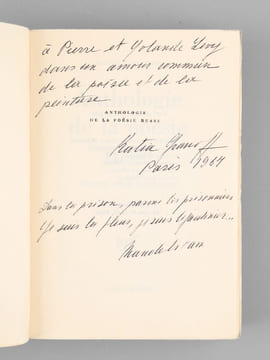 à Pierre et Yolande Levy
dans un amour commun
de la poésie et de la
peinture
ANTHOLOGIE
DE LA POÉSIE RUSSE
Katia Granoff
Paris 1964
Dans la prison, parmi les prisonniers
Je suis la fleur, je suis le jardinier...
Mandelstam